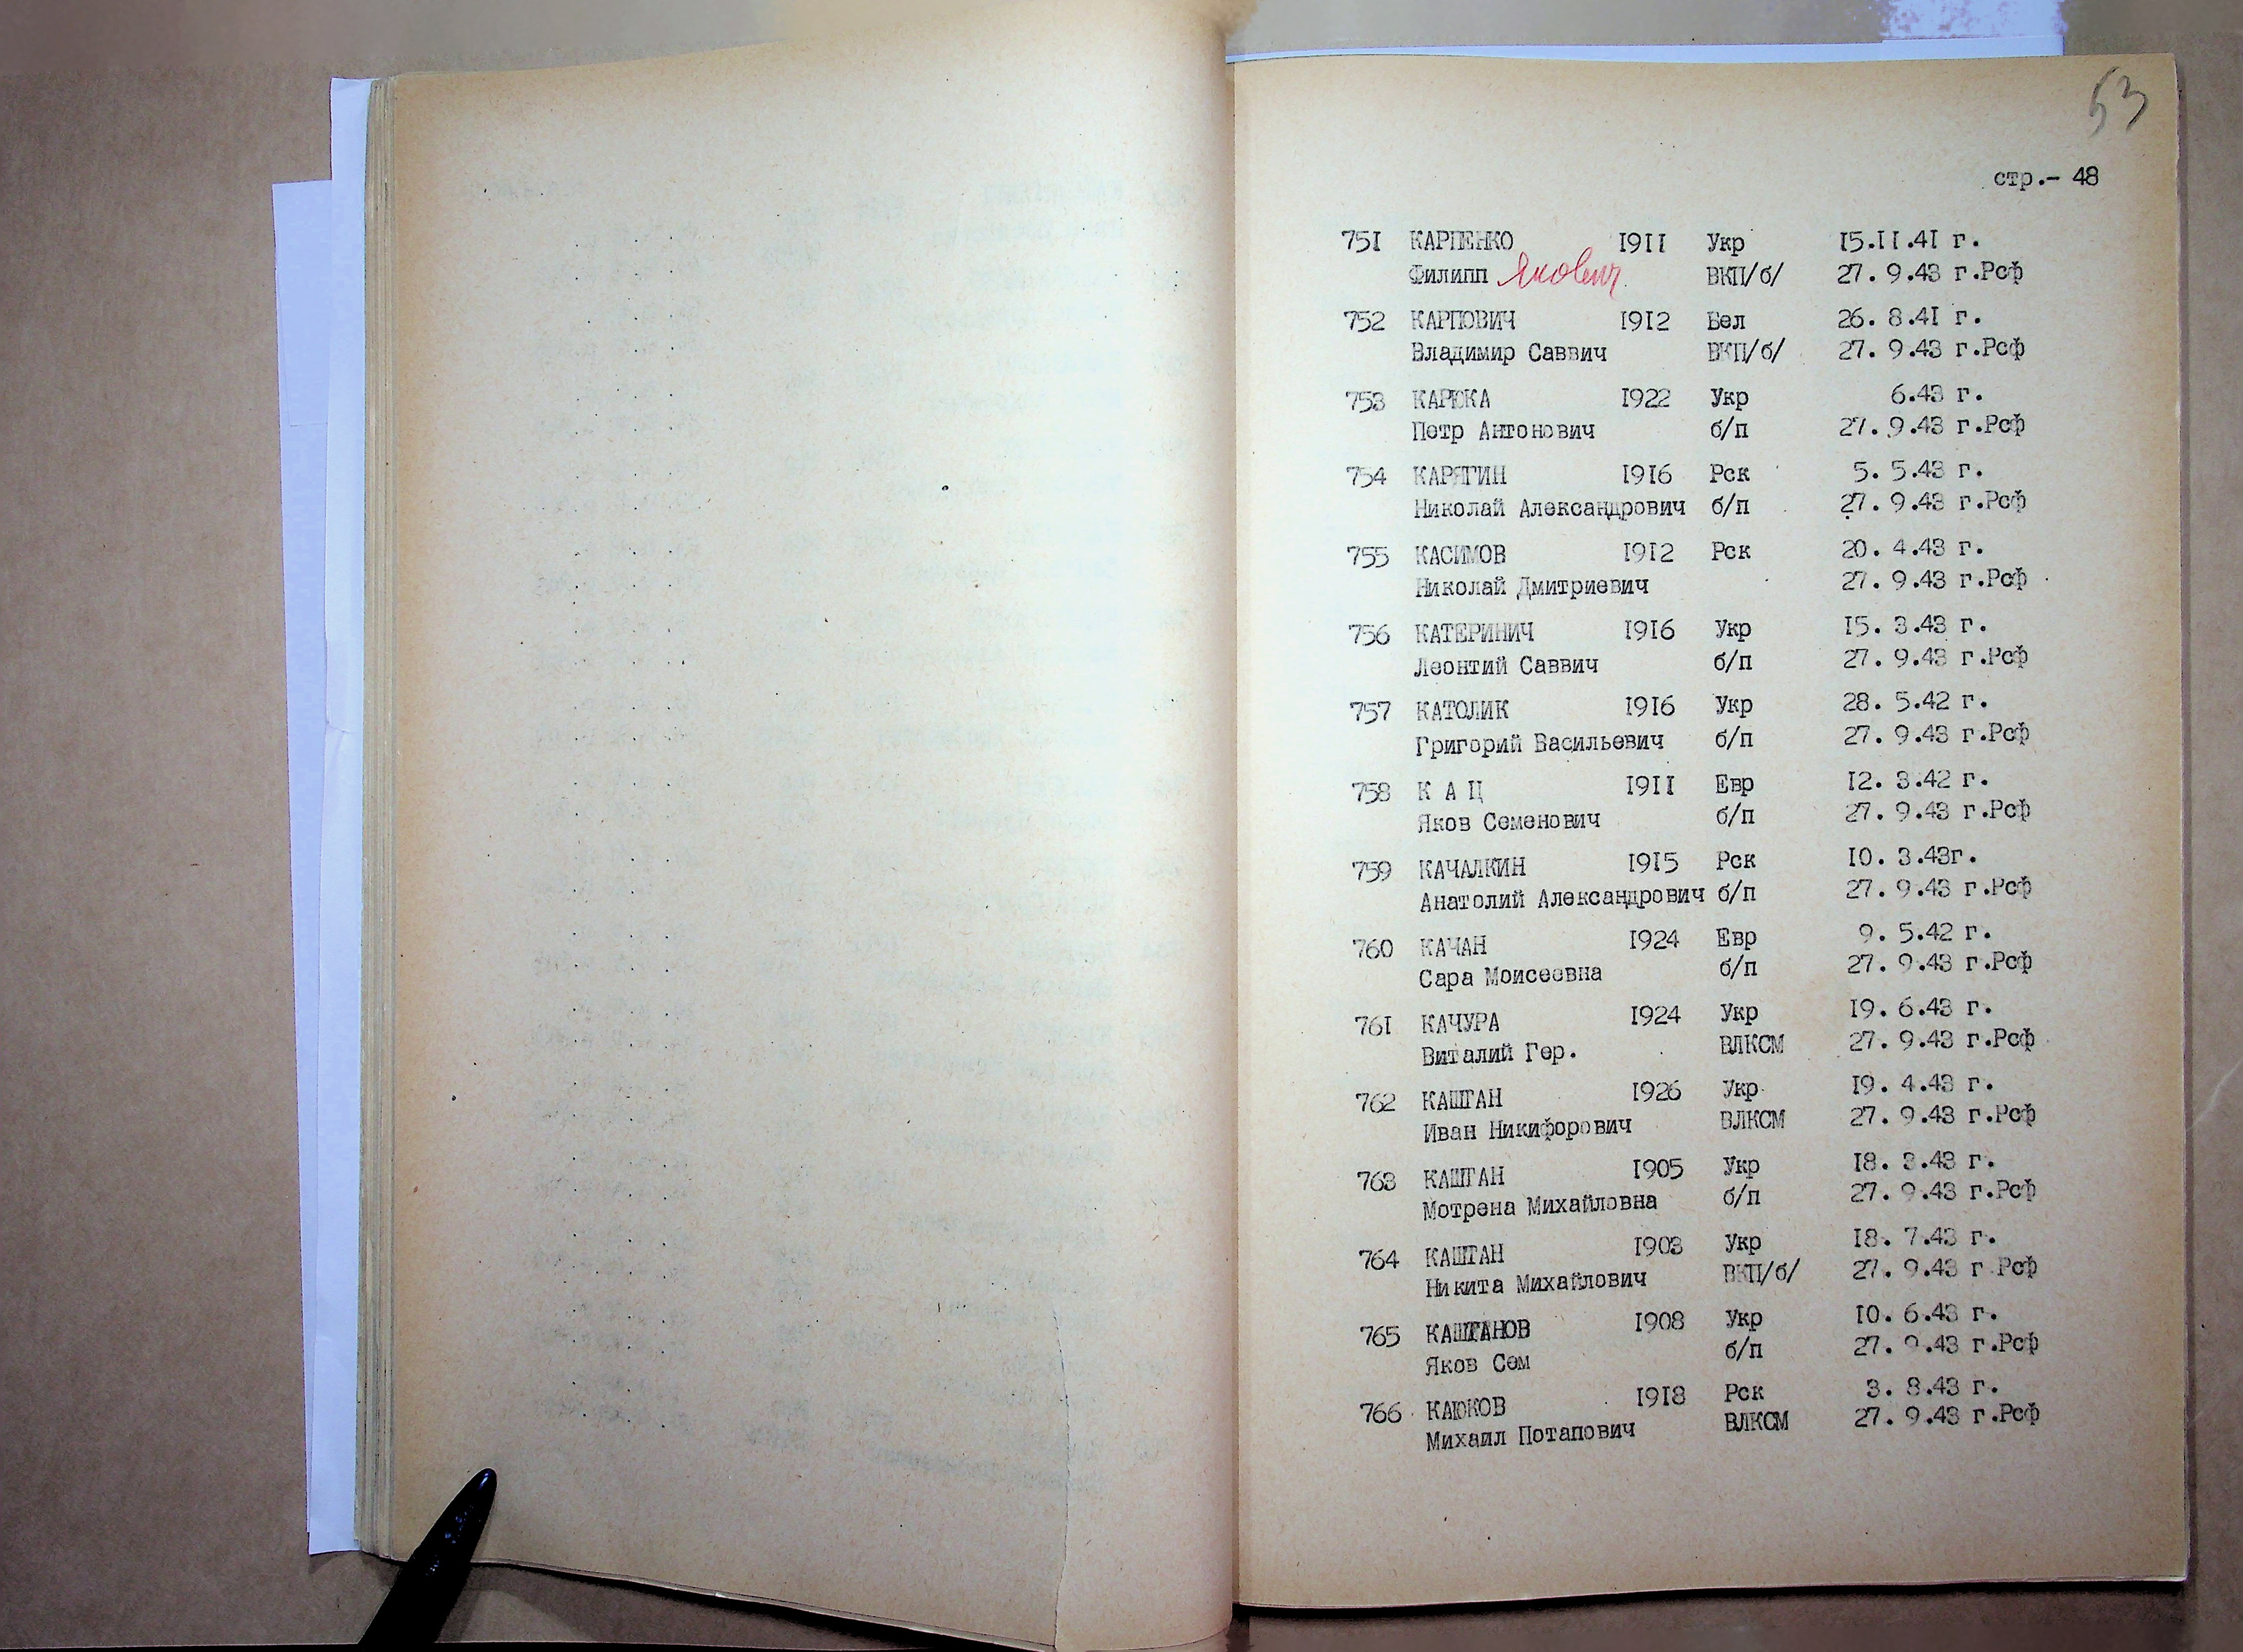 53
стр.- 48
751 КАРПЕНКО 1911 Укр 15.11.41 г.
Филипп Якович ВКП/б/ 27. 9.43 г.Рсф
752 КАРПОВИЧ 1912 Бел 26. 8.41 г.
Владимир Саввич ВКП/б/ 27. 9.43 г.Рсф
753 КАРЮКА 1922 Укр 6.43 г.
Петр Антонович б/п 27. 9.43 г.Рсф
754 КАРЯГИН 1916 Рск 5. 5.43 г.
Николай Александрович б/п 27. 9.43 г.Рсф
755 КАСИМОВ 1912 Рск 20. 4.43 г.
Николай Дмитриевич 27. 9.43 г.Рсф
756 КАТЕРИНИЧ 1916 Укр 15. 3.43 г.
Леонтий Саввич б/п 27. 9.43 г.Рсф
757 КАТОЛИК 1916 Укр 28. 5.42 г.
Григорий Васильевич б/п 27. 9.43 г.Рсф
758 К А Ц 1911 Евр 12. 3.42 г.
Яков Семенович б/п 27. 9.43 г.Рсф
759 КАЧАЛКИН 1915 Рск 10. 3.43г.
Анатолий Александрович б/п 27. 9.43 г.Рсф
760 КАЧАН 1924 Евр 9. 5.42 г.
Сара Моисеевна б/п 27. 9.43 г.Рсф
761 КАЧУРА 1924 Укр 19. 6.43 г.
Виталий Гер. ВЛКСМ 27. 9.43 г.Рсф
762 КАШТАН 1926 Укр 19. 4.43 г.
Иван Никифорович ВЛКСМ 27. 9.43 г.Рсф
763 КАШТАН 1905 Укр 18. 3.43 г.
Мотрена Михайловна б/п 27. 9.43 г.Рсф
764 КАШТАН 1903 Укр 18. 7.43 г.
Никита Михайлович ВКП/б/ 27. 9.43 г.Рсф
765 КАШТАНОВ 1908 Укр 10. 6.43 г.
Яков Сем б/п 27. 9.43 г.Рсф
766 КАЮКОВ 1918 Рск 3. 8.43 г.
Михаил Потапович ВЛКСМ 27. 9.43 г.Рсф